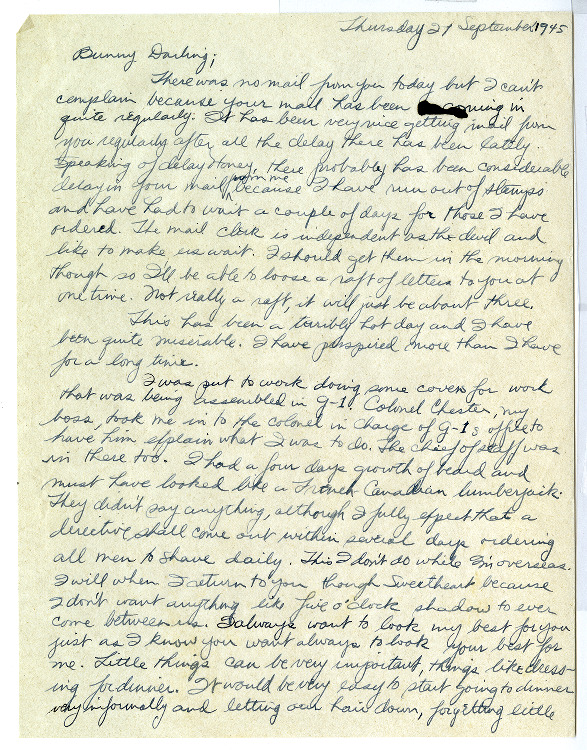 Thursday 27 September, 1945
Bunny Darling;
There was no mail from you today but I can't
complain because your mail has been coming in
quite regularly. It has been very nice getting mail from
you regularly after all the delay there has been lately.
Speaking of delay Honey, there probably has been considerable
delay in your mail from me because I have run out of stamps
and have had to wait a couple of days for those I have
ordered. The mail clerk is independent as the devil and
like to make us wait. I should get them in the morning
though so I'll be able to loose a raft of letters to you at
one time. Not really a raft, it will just be about three.
This has been a terribly hot day and I have
been quite miserable. I have perspired more than I have
for a long time.
I was put to work doing some covers for work
that was being assembled in G-1. Colonel Chester, my
boss, took me in to the colonel in charge of G-1s office to
have him explain what I was to do. The chief of staff was
in there too. I had a four days growth of beard and
must have looked like a French Canadian lumberjack.
They didn't say anything, although I fully expect that a
directive shall come out within several days ordering
all men to shave daily. This I don't do while I'm overseas.
I will when I return to you though Sweetheart because
I don't want anything like five o'clock shadow to ever
come between us. I always want to look my best for you
just as I know you want always to look your best for
me. Little things can be very important, things like dress-
ing for dinner. It would be very easy to start going to dinner
very informally and letting our hair down, forgetting little